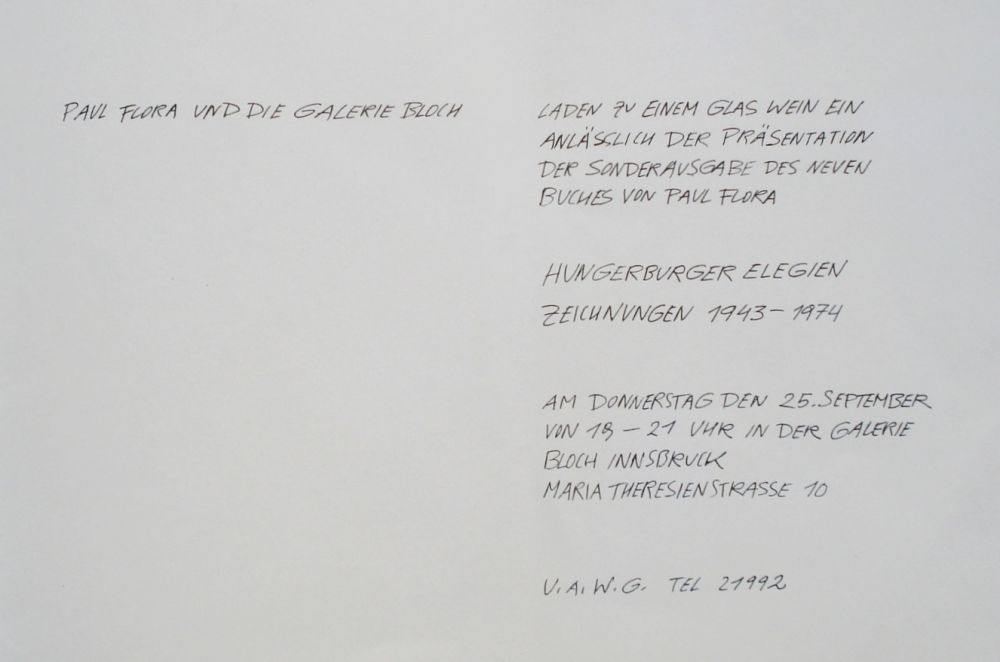 PAUL FLORA UND DIE GALERIE BLOCH
LADEN ZU EINEM GLAS WEIN EIN
ANLÄSSLICH DER PRÄSENTATION
DER SONDERAUSGABE DES NEUEN
BUCHES VON PAUL FLORA
HUNGERBURGER ELEGIEN
ZEICHNUNGEN 1943 – 1974
AM DONNERSTAG DEN 25. SEPTEMBER
VON 19 – 21 UHR IN DER GALERIE
BLOCH INNSBRUCK
MARIA THERESIENSTRASSE 10
U.A.W.G. TEL 21992